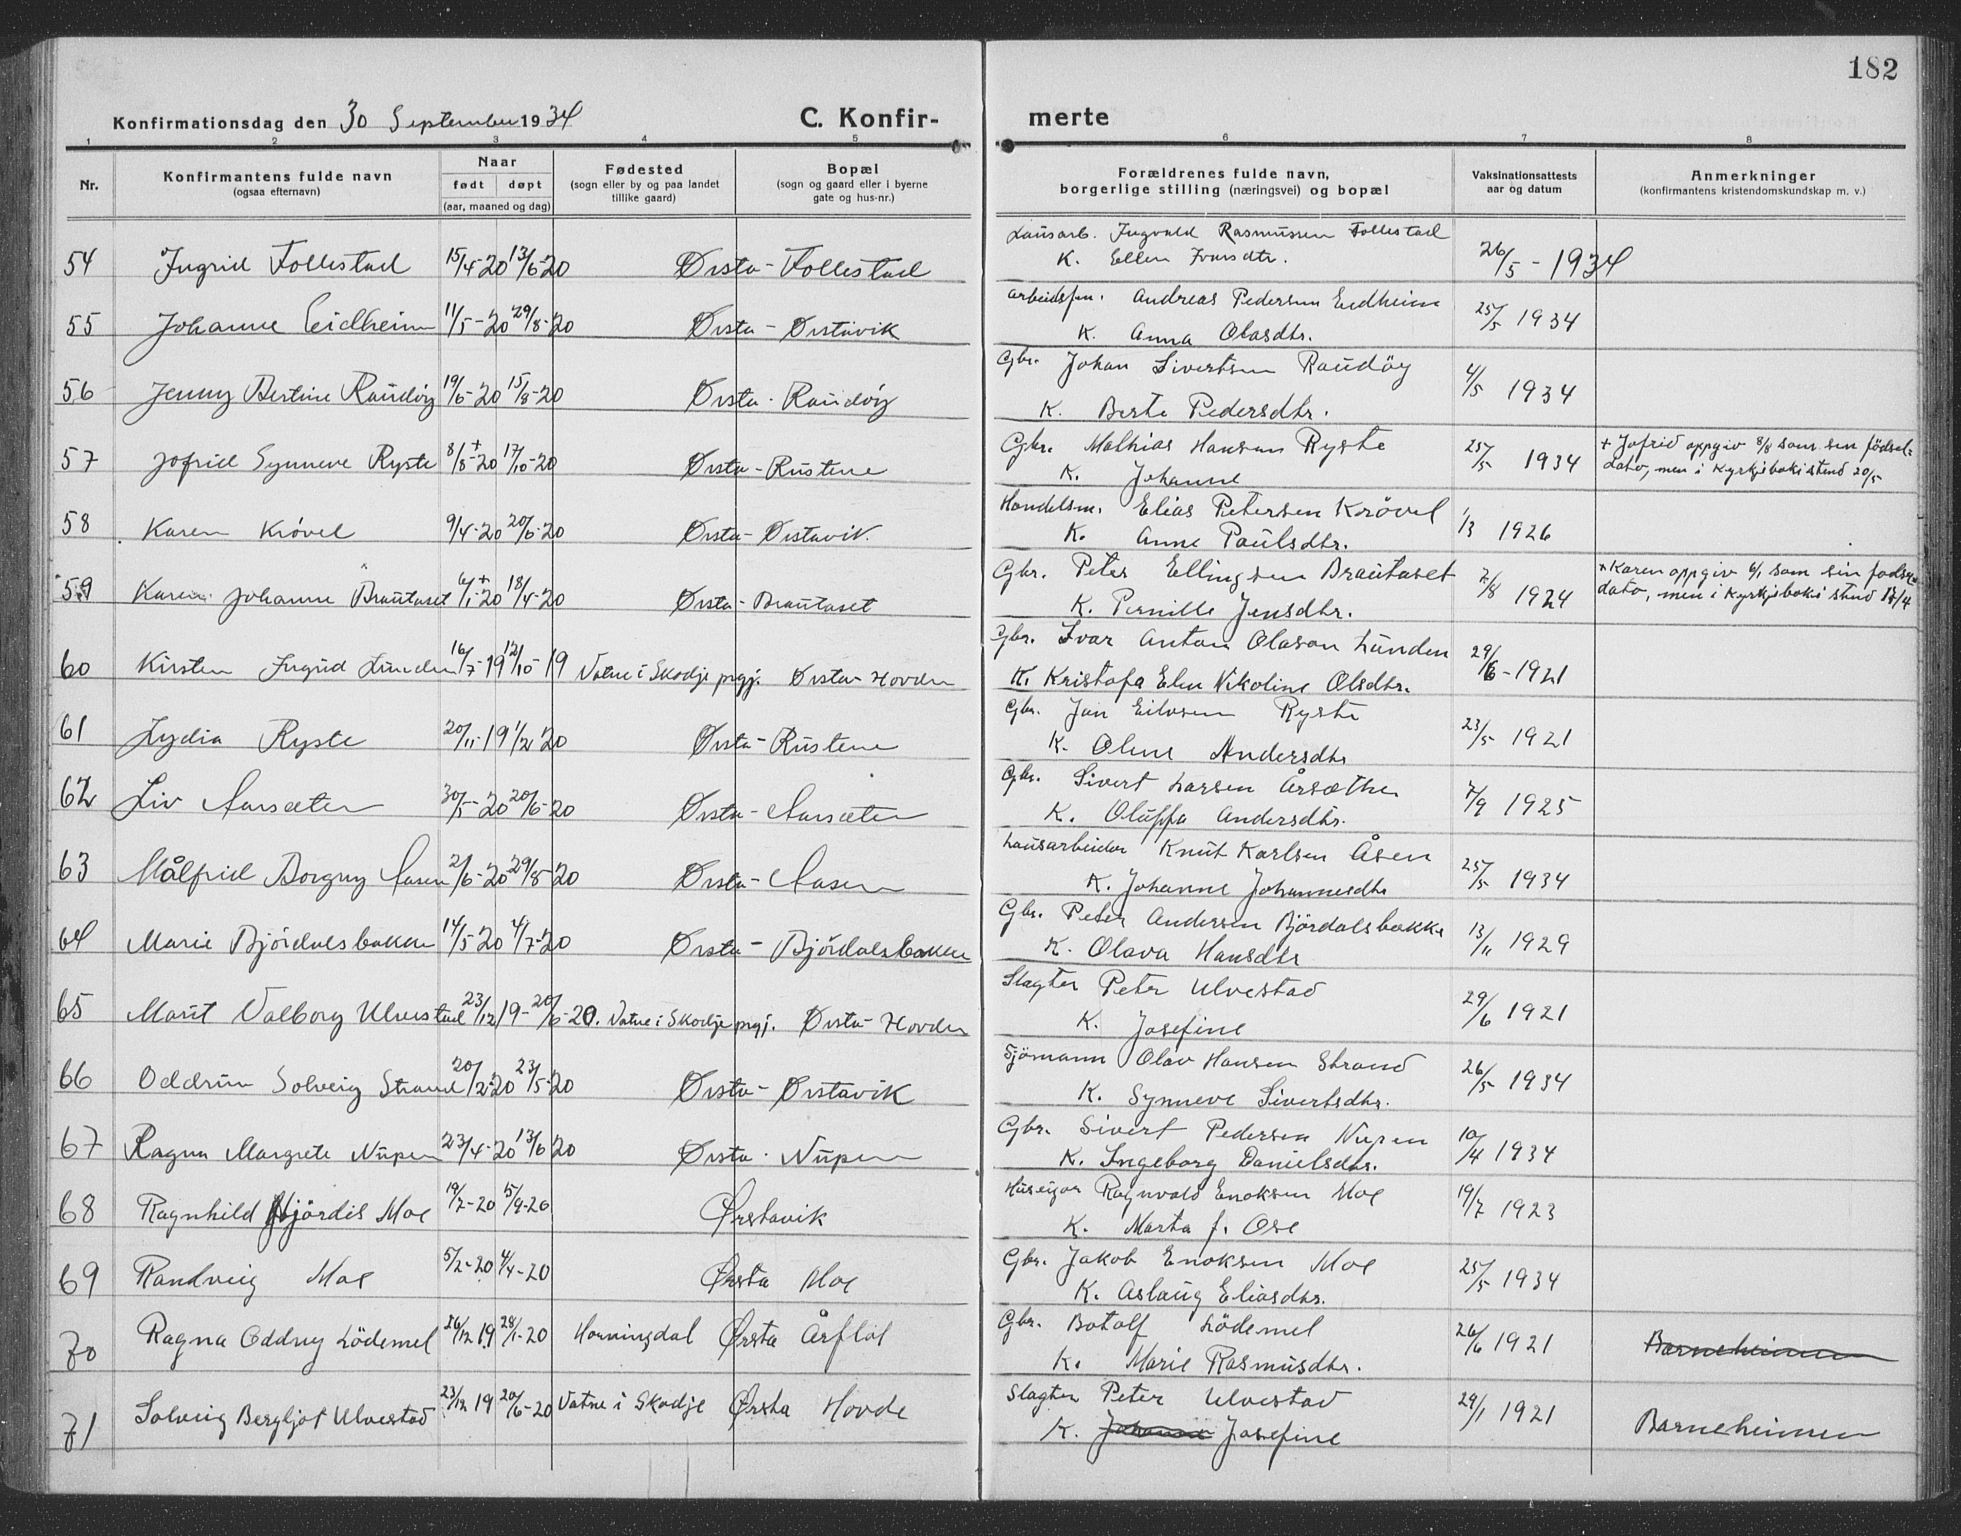 182
Konfirmationsdag den 30 September 1934 C. Konfir- merte
1 2 3 4 5 6 7 8
Nr. Konfirmantens fulde navn (ogsaa efternavn) Naar født døpt (aar, maaned og dag) Fødested (sogn eller by og paa landet tillike gaard) Bopæl (sogn og gaard eller i byerne gate og hus-nr.) Forældrenes fulde navn, borgerlige stilling (næringsvei) og bopæl Vaksinationsattests aar og datum Anmerkninger (konfirmantens kristendomskundskap m. v.)
Lausarb. Ingvald Rasmussen Follestad
54 Ingrid Follestad 15/4-20 13/6-20 Ørsta - Follestad K. Ellen Ivarsdtr. 26/5 - 1934
arbeidsfm. Andreas Pedersen Eidheim
55 Johanne Eidheim 11/5-20 29/8-20 Ørsta - Ørstavik K. Anna Olasdtr. 25/5 1934
Gbr. Johan Sivertsen Raudöy
56 Jenny Bertine Raudöy 19/6-20 15/8-20 Ørsta - Raudöy K. Berte Pedersdtr. 4/5 1934
Gbr. Mathias Hansen Ryste
57 Jofrid Synneve Ryste 8/8+-20 17/10-20 Ørsta - Rustene K. Johanne 25/5 1934 + Jofrid oppgiv 8/8 som sin födsel-
dato, men i kyrkjeboki stend 20/5
Handelsm. Elias Petersen Krövel
58 Karen Krövel 9/4-20 20/6-20 Ørsta - Ørstavik. K. Anne Paulsdtr. 1/3 1926
Gbr. Peter Ellingsen Brautaset
59 Karen Johanne Brautaset 6/1+-20 18/4-20 Ørsta - Brautaset K. Pernille Jensdtr. 7/8 1924 + Karen oppgiv 6/1 som sin
dato, men i kyrkjeboki stend /4
Gbr. Ivar Anton Olason Lunden
60 Kirsten Ingrid Lunden 16/7-19 12/10-19 Vatne i Skodje prgj. Ørsta - Hovden K. Kristofa Elen Nikoline Olsdtr. 29/6 - 1921
Gbr. Jon Eilvsen Ryste
61 Lydia Ryste 20/11-19 1/2-20 Ørsta - Rustene K. Oline Andersdtr 23/5 1921
Gbr. Sivert Larsen Årsæther
62 Liv Aarsæter 30/5-20 20/6-20 Ørsta - Aarsæter K. Oluffa Andersdtr. 7/9 1925
Lausarbeider Knut Karlsen Åsen
63 Målfrid Borgny Aasen 2/6-20 29/8-20 Ørsta - Aasen K. Johanne Johannesdtr 25/5 1934
Gbr. Peter Andersen Björdalsbakke
64 Marie Björdalsbakken 14/5-20 4/7-20 Ørsta - Björdalsbakken K. Olava Hansdtr 13/11 1929
Slagter Peter Ulvestad
65 Marit Valborg Ulvestad 23/12 19- 20/6-20. Vatne i Skodje prgj. Ørsta - Hovden K. Josefine 29/6 1921
Sjömann Olav Hansen Strand
66 Oddrun Solveig Strand 20/2-20 23/5-20 Ørsta - Ørstavik K. Synneve Sivertsdtr. 26/5 1934
Gbr. Sivert Pedersen Nupen
67 Ragna Margrete Nupen 23/4-20 13/6 20 Ørsta - Nupen K. Ingeborg Danielsdtr. 10/4 1934
Huseigar Ragnvald Enoksen Moe
68 Ragnhild Hjördis Moe 19/7-20 5/9-20 Ørstavik K. Marta f. Ose 19/7 1923
Gbr. Jakob Enoksen Moe
69 Randveig Moe 5/2-20 4/4-20 Ørsta Moe K. Aslaug Eliasdtr. 25/5 1934
Gbr. Botolf Lödemel
70 Ragna Oddny Lödemel 26/12 19 28/1-20 Hornindal Ørsta Årflot K. Marie Rasmusdtr. 26/6 1921 Barneheimen
Slagter Peter Ulvestad
71 Solveig Bergljot Ulvestad 23/12 19 20/6-20 Vatne i Skodje Ørsta Hovde K. Johanne Josefine 29/1 1921 Barneheimen